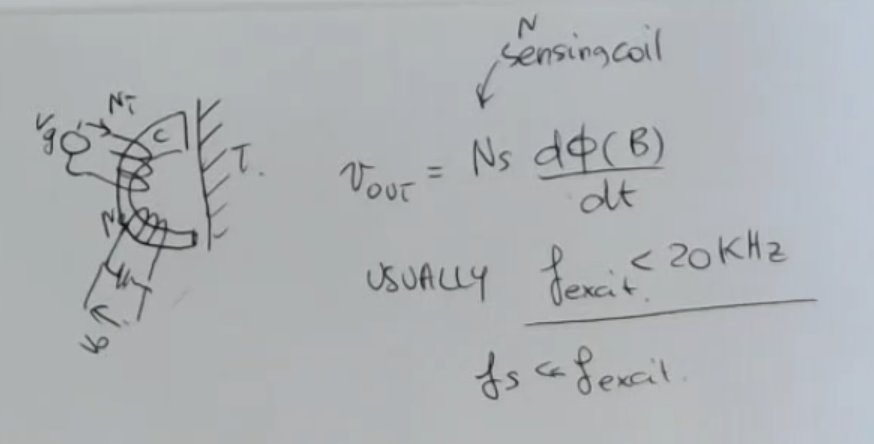 N
sensing coil
Vg
NI
C
T.
v_OUT = Ns dϕ(B)/dt
N
USUALLY f_excit. < 20 KHz
fs << f_excit.